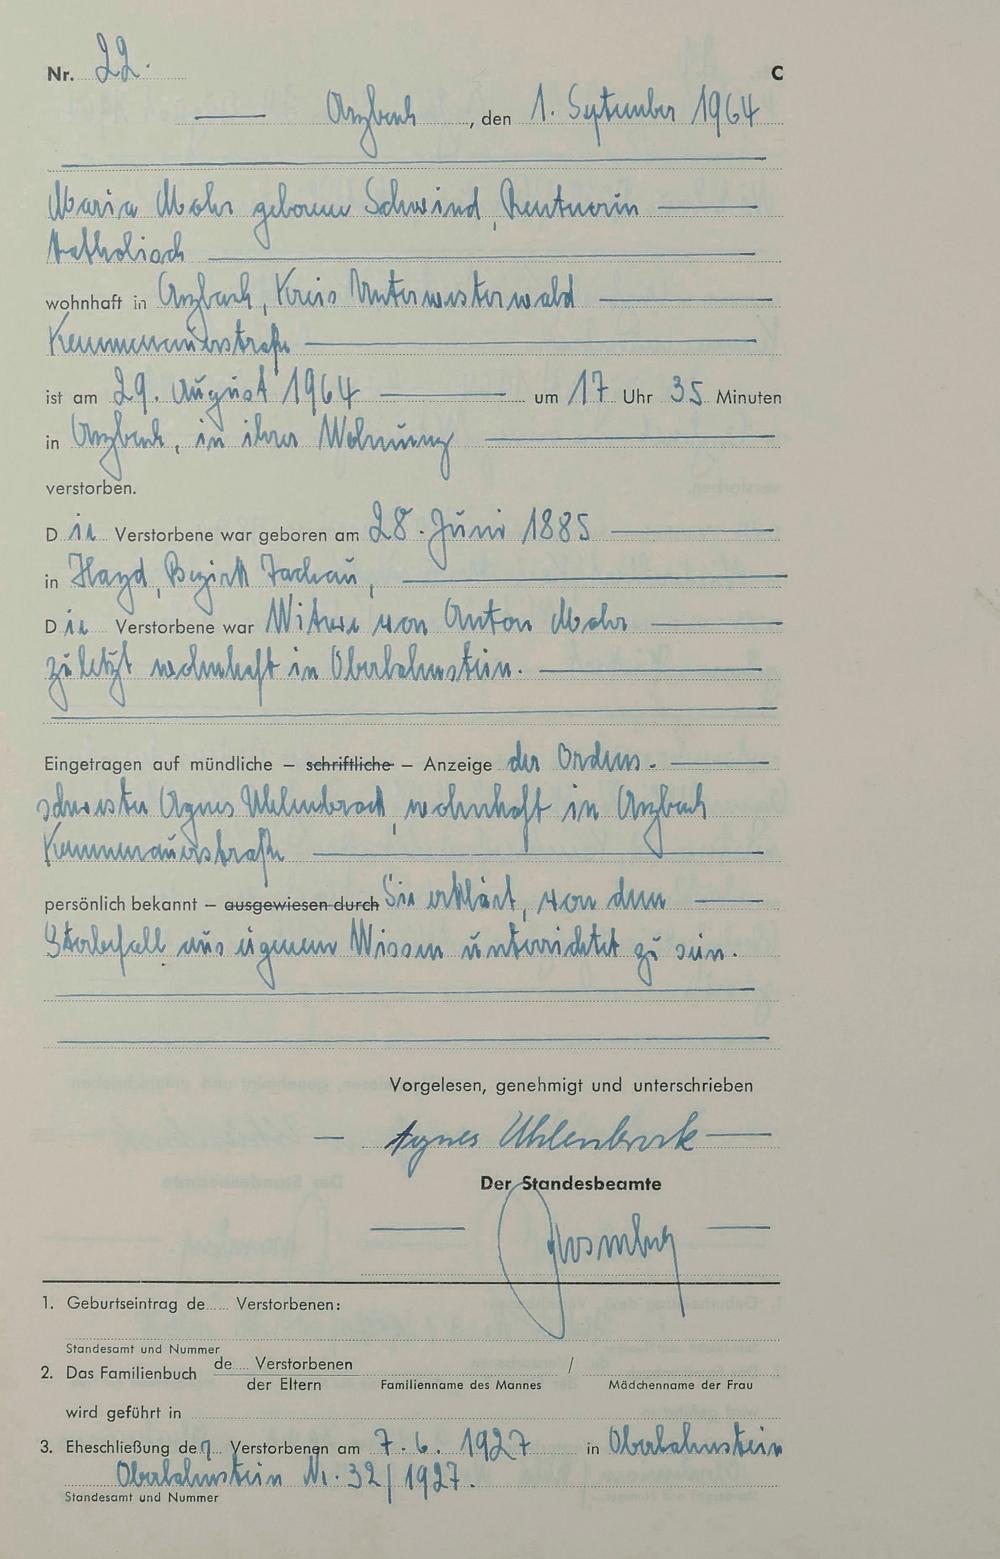 Nr. 22. C
Arzbach, den 1. September 1964
Maria Mohr geborene Schwind, Rentnerin
katholisch
wohnhaft in Arzbach, Kreis Unterwesterwald
Kemmenauerstraße
ist am 29. August 1964 um 17 Uhr 35 Minuten
in Arzbach, in ihrer Wohnung
verstorben.
Die Verstorbene war geboren am 28. Juni 1885
in Hayd, Bezirk Tachau,
Die Verstorbene war Witwe von Anton Mohr
zuletzt wohnhaft in Oberlahnstein.
Eingetragen auf mündliche – schriftliche – Anzeige der Ordens-
schwester Agnes Uhlenbrock, wohnhaft in Arzbach
Kemmenauerstraße
persönlich bekannt – ausgewiesen durch Sie erklärt, von dem
Sterbefall aus eigenem Wissen unterrichtet zu sein.
Vorgelesen, genehmigt und unterschrieben
Agnes Uhlenbrock
Der Standesbeamte
1. Geburtseintrag de...... Verstorbenen:
Standesamt und Nummer
2. Das Familienbuch de.... Verstorbenen /
der Eltern Familienname des Mannes Mädchenname der Frau
wird geführt in
3. Eheschließung der Verstorbenen am 7.6.1927 in Oberlahnstein
Oberlahnstein Nr. 32/1927.
Standesamt und Nummer